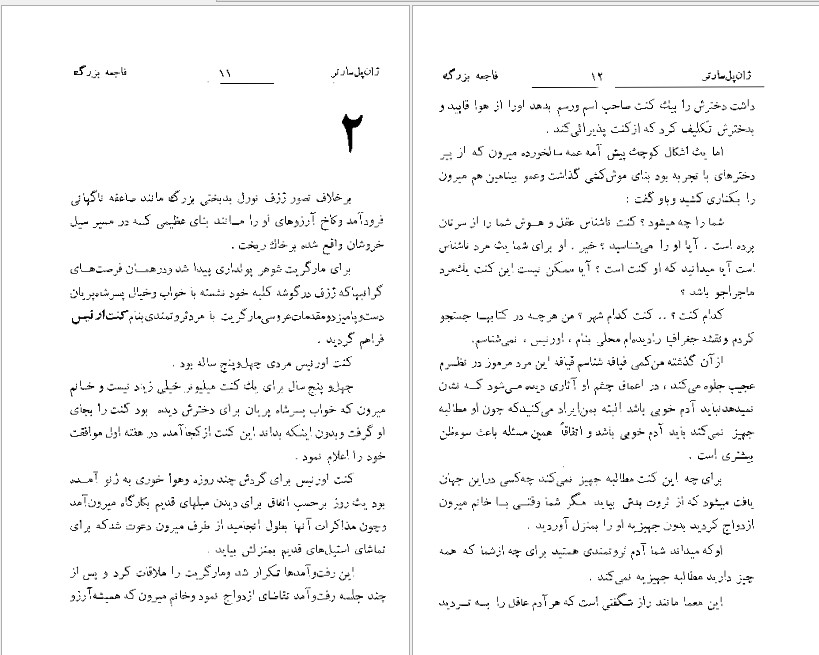 ژان‌پل‌سارتر ۱۱ فاجعه بزرگ
۲
برخلاف تصور ژزف نورل بدبختی بزرگ مانند صاعقه ناگهانی
فرودآمد وکاخ آرزوهای او را مـانند بنای عظیمی کـه در مسیر سیل
خروشان واقع شده برخاك ریخت .
برای مارگریت شوهر پولداری پیدا شد ودرهمان فرصت‌های
گرانبهاکه ژزف درگوشه کلبه خود نشسته با خواب وخیال پسرشاه‌پریان
دست‌وپامیزدمقدمات‌عروسی‌مارگریت با مردثروتمندی‌بنام کنت‌ارنیس
فراهم گردید .
کنت اورنیس مردی چهل‌وپنج ساله بود .
چهل‌و پنج سال برای یك کنت میلیونر خیلی زیاد نیست و خـانم
میرون که خواب پسرشاه پریان برای دخترش دیده بود کنت را بجای
او گرفت وبدون اینکه بداند این کنت ازکجاآمده در هفته اول موافقت
خود را اعلام نمود .
کنت اورنیس برای گردش چند روزه وهوا خوری به ژنو آمـده
بود یك روز برحسب اتفاق برای دیدن مبلهای قدیم بکارگاه میرون‌آمد
وچون مذاکرات آنها بطول انجامید از طرف میرون دعوت شدکه برای
تماشای استیل‌های قدیم بمنزلش بیاید .
این رفت‌وآمدها تکرار شد ومارگریت را ملاقات کرد و پس از
چند جلسه رفت‌وآمد تقاضای ازدواج نمود وخانم میرون که همیشه‌آرزو
ژان‌پل‌سارتر ۱۲ فاجعه بزرگ
داشت دخترش را بیك کنت صاحب اسم ورسم بدهد اورا از هوا قاپید و
بدخترش تکلیف کرد که ازکنت پذیرائی‌کند .
اما یك اشکال کوچك پیش آمد عمه سالخورده میرون که از پیر
دخترهای با تجربه بود بنای موش‌کشی گذاشت وعمو بنیامین هم میرون
را بکناری کشید وباو گفت :
شما را چه میشود ؟ کنت ناشناس عقل و هوش شما را از سرتان
برده است . آیا او را می‌شناسید ؟ خیر . او برای شما یك مرد ناشناس
است آیا میدانید که او کنت است ؟ آیا ممکن نیست این کنت یك‌مرد
ماجراجو باشد ؟
کدام کنت ؟ .. کنت کدام شهر ؟ من هرچه در کتابهـا جستجو
کردم ونقشه جغرافیا رادیده‌ام محلی بنام ، اورنیس ، نمی‌شناسم.
ازآن گذشته من‌کمی قیافه شناسم قیافه این مرد مرموز در نظـرم
عجیب جلوه می‌کند ، در اعماق چشم او آثاری دیده می‌شود کـه نشان
نمیدهدنباید آدم خوبی باشد البته بمن‌ایراد می‌کنیدکه چون او مطالبه
جهیز نمی‌کند باید آدم خوبی باشد و اتفاقاً همین مسئله باعث سوءظن
بیشتری است .
برای چه این کنت مطالبه جهیز نمی‌کند چه‌کسی دراین جهان
یافت میشود که از ثروت بدش بیاید مگر شما وقتـی بـا خانم میرون
ازدواج کردید بدون جهیزیه او را بمنزل آوردید .
اوکه میداند شما آدم ثروتمندی هستید برای چه ازشما که همه
چیز دارید مطالبه جهیزیه نمی‌کند .
این معما مانند راز شگفتی است که هرآدم عاقل را بـه تـردید